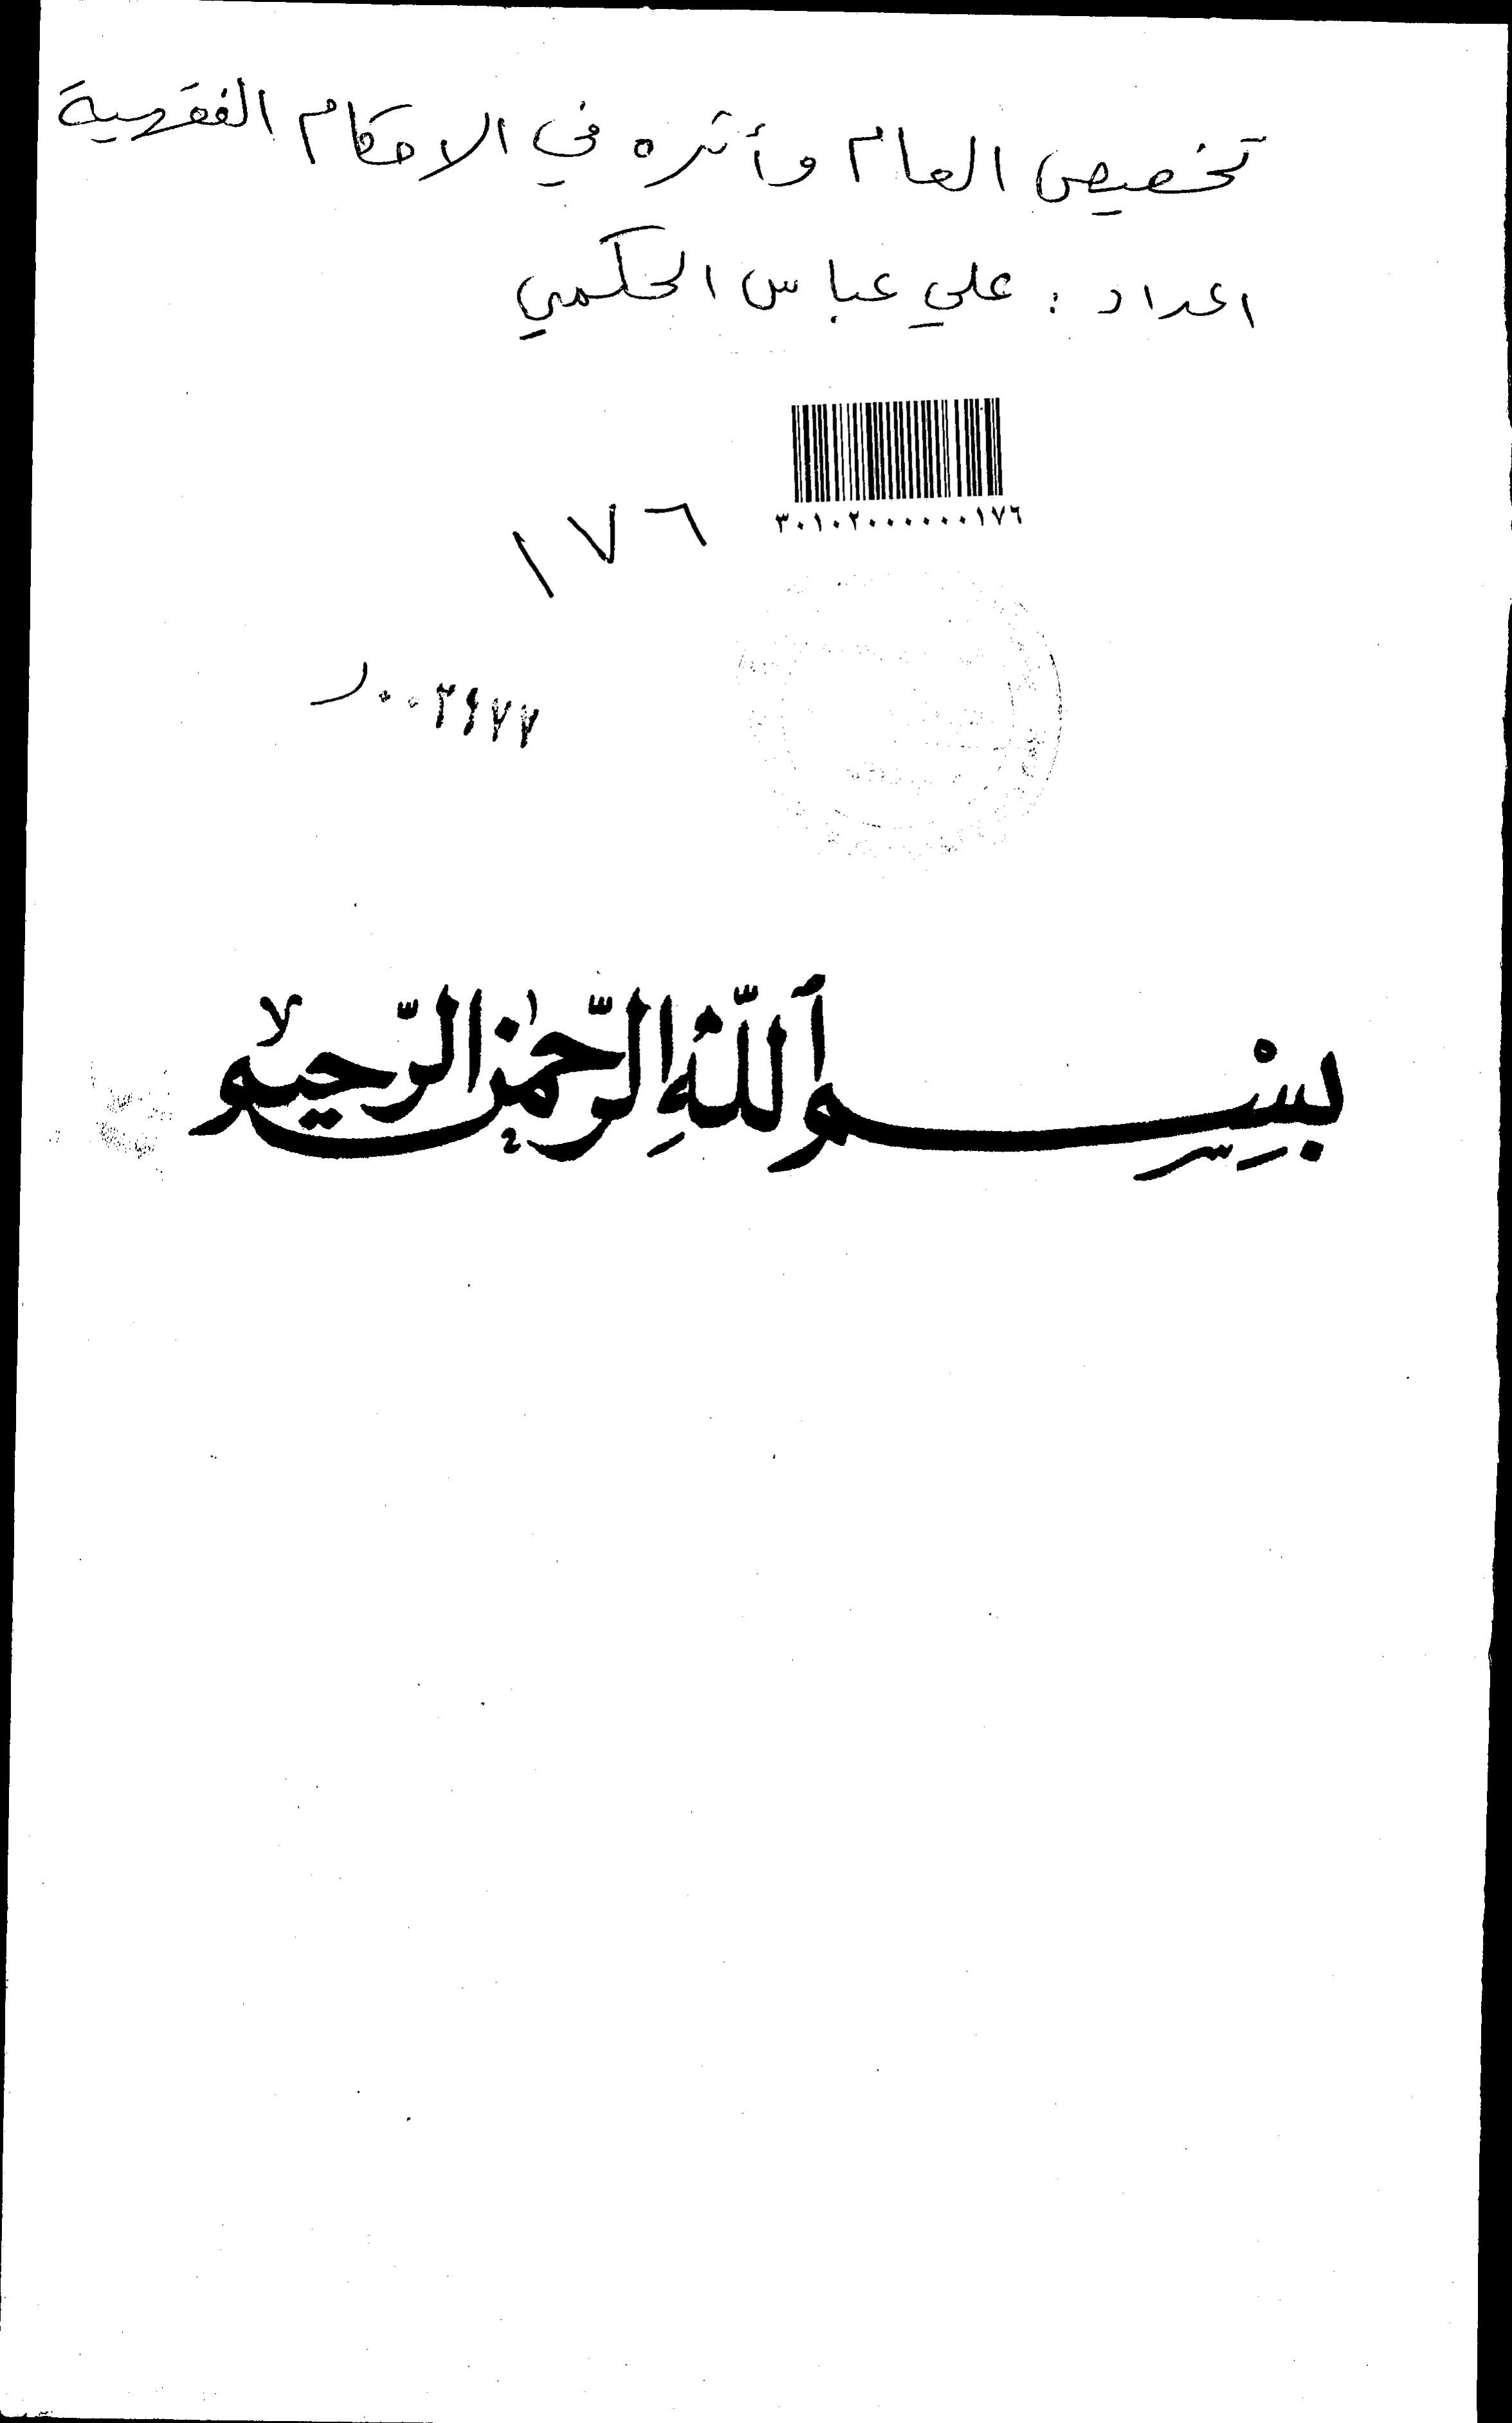 تخصيص العام وأثره في الاحكام الفقهية
اعداد : علي عباس الحكمي
٣٠١٠٢٠٠٠٠٠٠١٧٦
١٧٦
٠٠٣٤٧٧ر
بِسْمِ اللَّهِ الرَّحْمَٰنِ الرَّحِيمِ